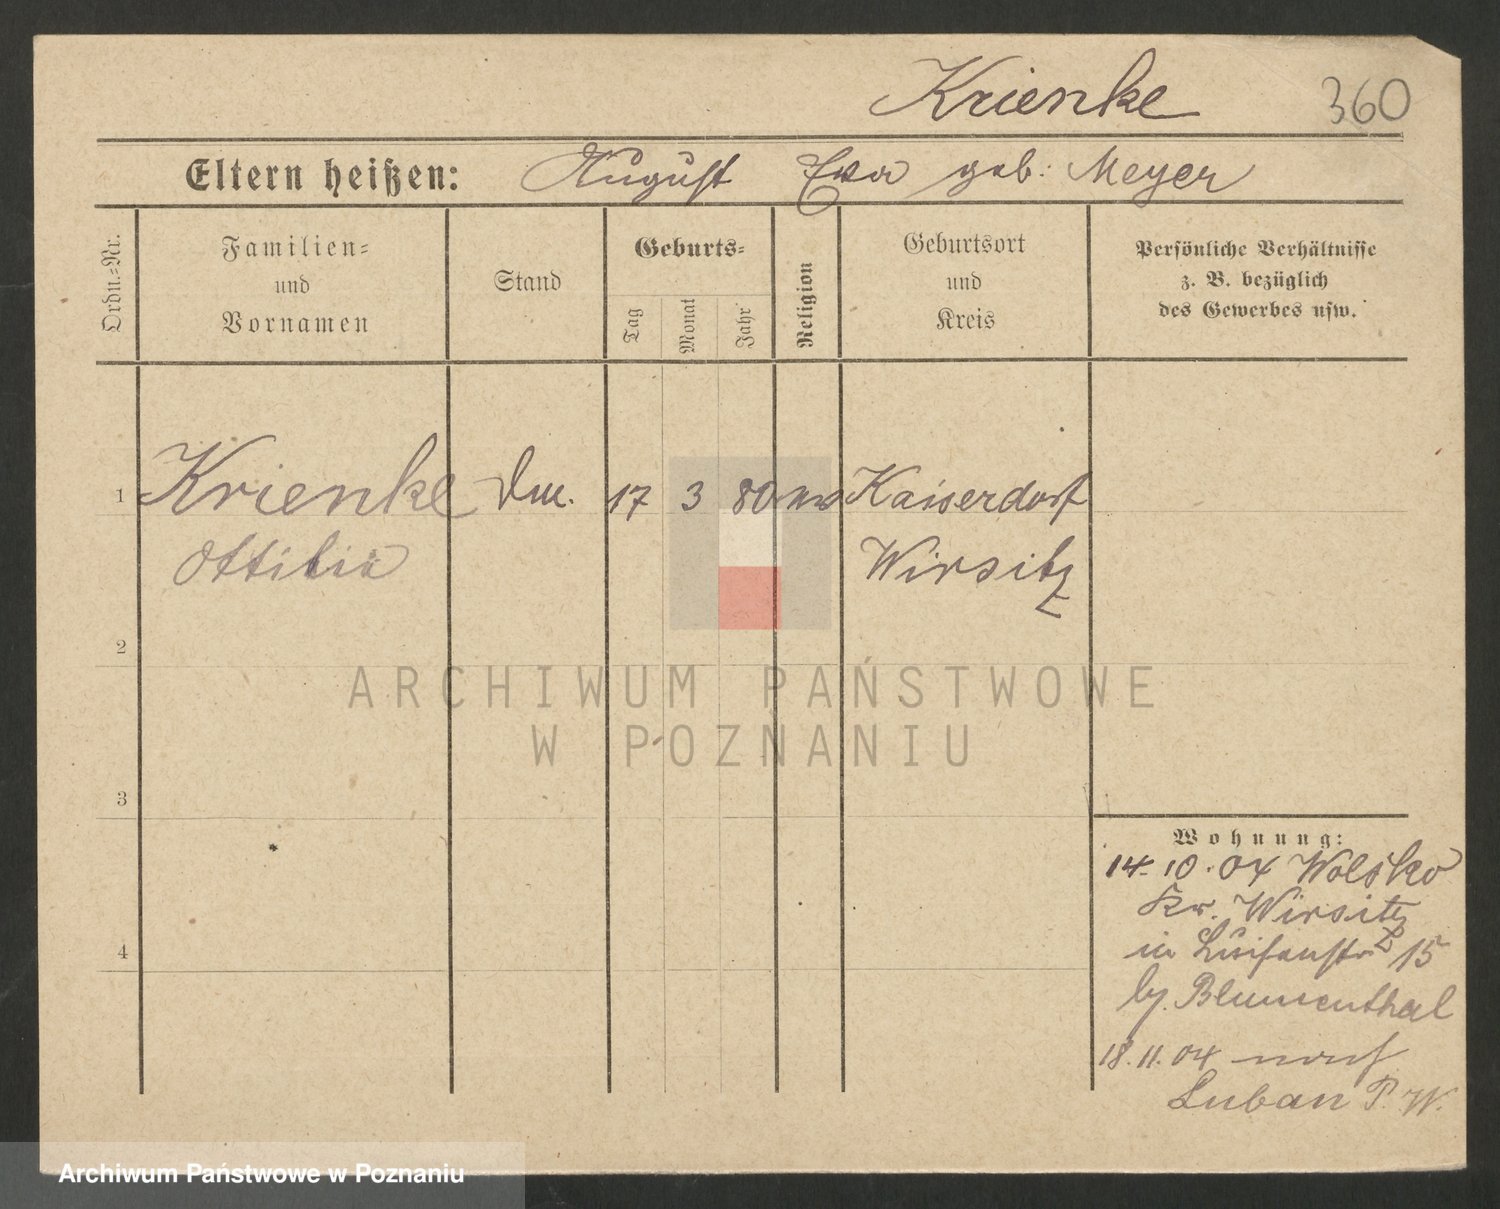 Krienke 360
Eltern heißen: August Eva geb. Meyer
Ordn.=Nr.
Familien=
und
Vornamen
Stand
Geburts=
Tag
Monat
Jahr
Religion
Geburtsort
und
Kreis
Persönliche Verhältnisse
z. B. bezüglich
des Gewerbes usw.
1 Krienke 17 3 80 Kaiserdorf
Ottilie Wirsitz
2
3
4
Wohnung:
14.10.04 Wolsko
Kr. Wirsitz
in Luisenstr 15
by. Blumenthal
18.11.04 nach
Luban P. W.
ARCHIWUM PAŃSTWOWE
W POZNANIU
Archiwum Państwowe w Poznaniu